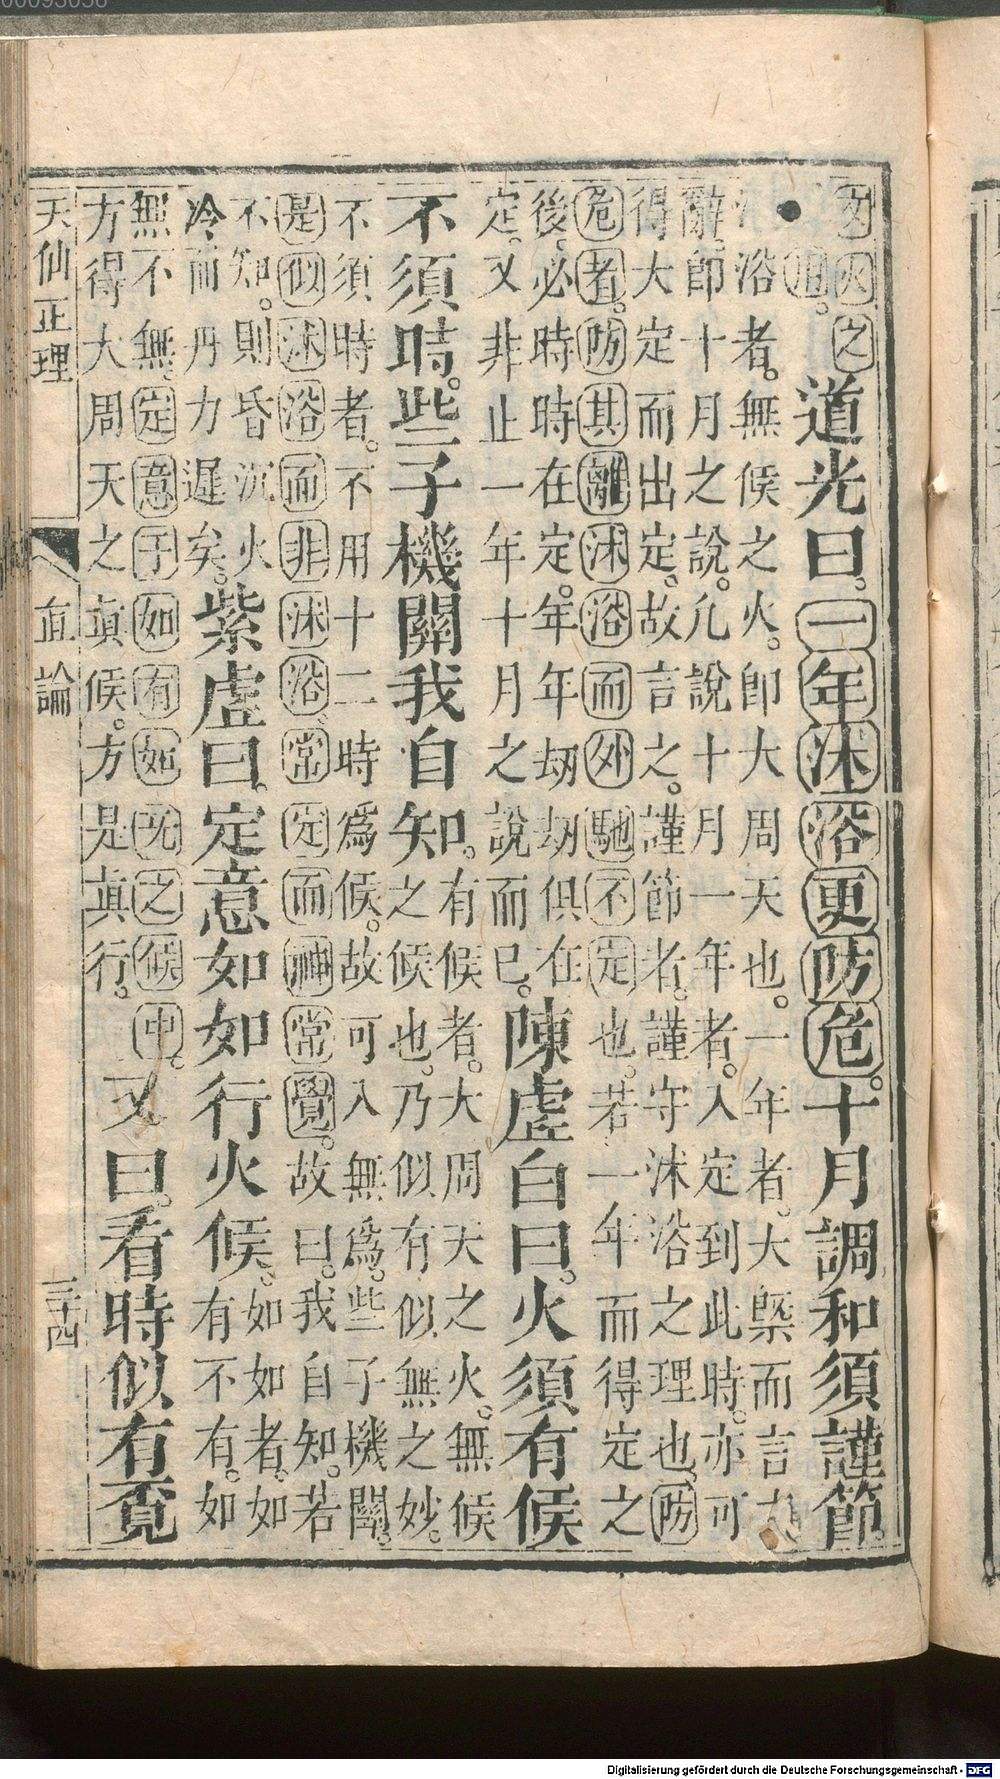 文火之
用。
道光曰。一年沐浴更防危。十月調和須謹節。
沐浴者。無候之火。即大周天也。一年者。大槩而言
辭。即十月之說。凡說十月一年者。入定到此時。亦可
得大定而出定。故言之。謹節者。謹守沐浴之理也。防
危者。防其離沐浴而外馳不定也。若一年而得定之
後。必時時在定。年年刼刼俱在
定。又非止一年十月之說而已。
陳虛白曰。火須有候
不須時。些子機關我自知。
有候者。大周天之火。無候
之候也。乃似有似無之妙。
不須時者。不用十二時爲候。故可入無爲。些子機關。
是似沐浴而非沐浴。常定而神常覺。故曰。我自知。若
不知。則昏沉火
冷而丹力遲矣。
紫虛曰。定意如如行火候。
如如者。如
有不有。如
無不無。定意于如有如无之候中。
方得大周天之眞候。方是眞行。
又曰。看時似有覓
天仙正理
直論
三十四
00093056
Digitalisierung gefördert durch die Deutsche Forschungsgemeinschaft - DFG